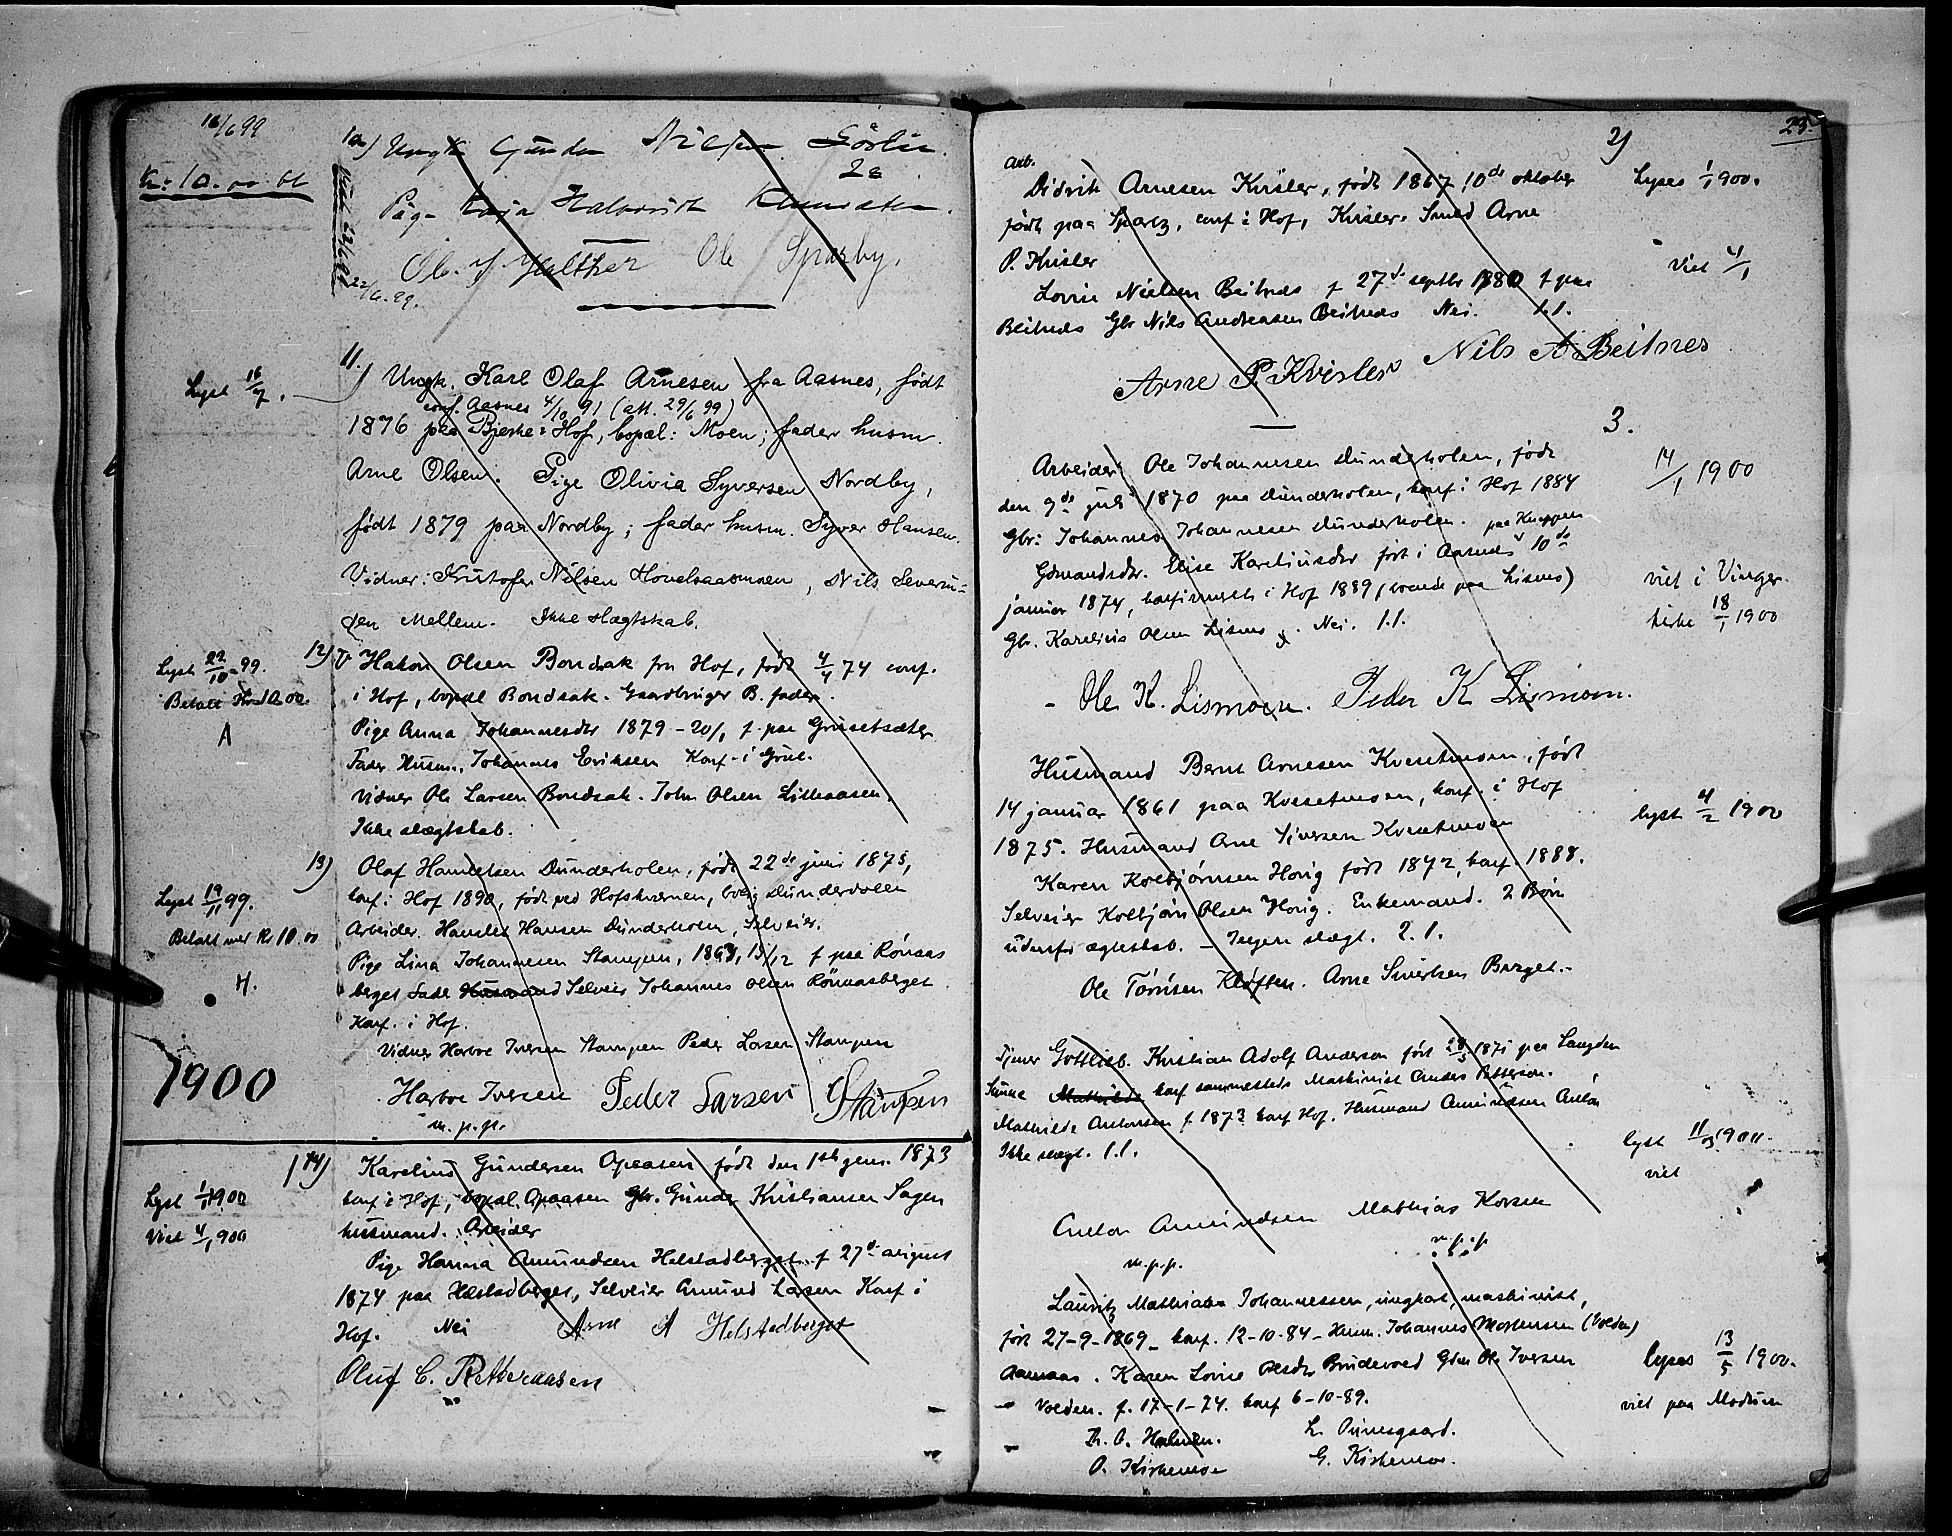 18/6 99
Kr. 10.00
10) Ungk Gunder Nilsen
Pige Kaja Halvorsdt
Ole Sparby.
22/6.99.
Lyst 16/7.
11.) Ungk. Karl Olaf Arnesen fra Aasnes, født
conf. Aasnes 4/10 91 (att. 29/6 99)
1876 paa Bjerke i Hof, bopæl: Moen; fader husm.
Arne Olsen. Pige Olivia Syversen Nordby,
født 1879 paa Nordby; fader husm. Syver Hansen.
Vidner: Kristofer Nilsen Hovelsaasmoen, Nils Severin-
sen Mellem. Ikke slægtskab.
Lyst 22/10 99.
12) Hakon Olsen Bondsak fra Hof, født 4/4 74 conf.
i Hof, bopæl Bondsak. Gaardbruger B. fader.
A
Pige Anna Johannesdtr 1879 - 20/1 f. paa Grusetsæter
Fader Husm. Johannes Eriksen Konf. i Grue.
Vidner Ole Larsen Bondsak. John Olsen Lilleaasen.
Ikke slægtskab.
13) Olaf Hanselsen Dunderholen, født 22de juni 1875,
Lyst 19/11 99.
konf. i Hof 1890, født ved Hofskvernen, bolig Dunderholen
Arbeider. Hansel Hansen Dunderholen, Selveier.
Betalt mer Kr 10.00
Pige Lina Johannesen Stampen, 15/12 f paa Rönaas
H.
berget Fader Husmand Selveier Johannes Olsen Rönaasberget
Konf. i Hof.
Vidner Harboe Iversen Stampen Peder Larsen Stampen
1900
Harboe Iversen Peder Larsen Stampen
m.p.p.
14) Karelius Gundersen Opaasen født den 1ste jan. 1873
Lyst 1/1 1900
konf. i Hof, bopæl Opaasen Gbr. Gunder Kristiansen Sagen
Viet 4/1 900
husmand. Arbeider
Pige Hanna Amundsen Helstadberget f 27de august
1874 paa Helstadberget, Selveier Amund Larsen Konf i
Hof. Nei Arne A Helstadberget
Oluf C. Retteraasen
23.
2)
Arb.
Didrik Arnesen Kvisler, født 1867 10de oktober
Lyses 1/1 900.
født paa, conf i Hof, Kvisler. Smed Arne
P. Kvisler
Viet 4/1
Lovise Nielsen Beitnes f 27de septbr 1880 f paa
Beitnes Gbr Nils Andreasen Beitnes Nei. 1.1.
Arne P. Kvisler Nils A Beitnes
3.
Arbeider Ole Johannesen Dunderholen, født
14/1 1900
den 9de juli 1870 paa Dunderholen, konf i Hof 1884
Gbr: Johannes Johannesen Dunderholen. paa Knappen
Gdmandsdtr. Elise Kareliusdtr født i Aasnes 10de
januar 1874, konfirmeret i Hof 1889 (boende paa Lismo)
viet i Vinger
kirke 18/1 1900
Gbr. Karelius Olsen Lismo. Nei. 1.1.
Ole K. Lismoen. Peder K Lismoen.
Husmand Bernt Arnesen Kvesetmoen, født
14 januar 1861 paa Kvesetmoen, konf. i Hof
lyst 4/2 1900
1875. Husmand Arne Siversen Kvesetmoen
Karen Kolbjørnsen Horig født 1872, konf. 1888.
Selveier Kolbjørn Olsen Horig. Enkemand. 2 Børn
udenfor ægteskab. - Ingen slægt. 2.1.
Ole Tørnsen Kløften. Arne Siversen Berget.
Tjener Gottlieb Kristian Adolf Anderson født 28/5 1871 paa Langden
Sunne konf sammesteds Maskinist Anders Petterson.
Mathilde Antonsen f. 1873 konf Hof. Husmand Amundsen Anton
lyst 11/3 1900.
Ikke slægt. 1.1.
viet
Anton Amundsen Mathias Korsen
m.p.p. m.p.p
Lauritz Mathias Johannessen, ungkar, maskinist,
født 27-9-1869 - konf. 12-10-84 - Husm. Johannes Mortensen (Volden)
lyses 13/5 1900.
Aamaas. Karen Lovise Olsdtr Brudevold Gdm Ole Iversen
Volden. f. 17-1-74. konf 6-10-89.
viet paa Modum
O. Kirkemoe G. Kirkemoe.